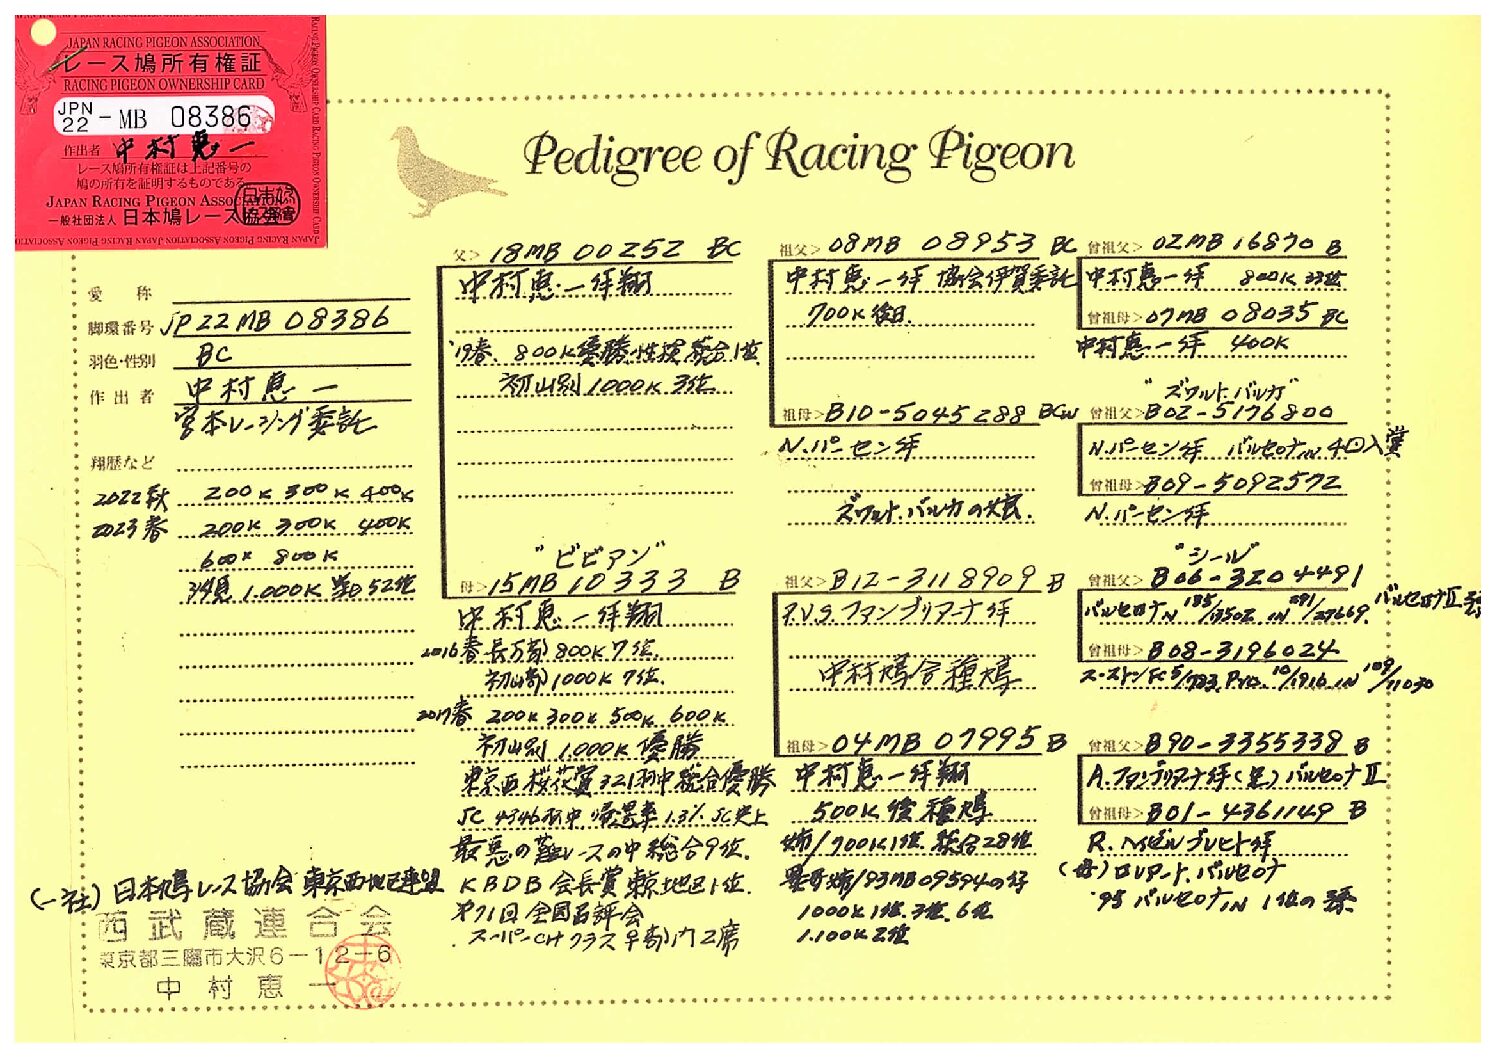 JAPAN RACING PIGEON ASSOCIATION
レース鳩所有権証
RACING PIGEON OWNERSHIP CARD
JPN 22 - MB 08386
作出者 中村恵一
レース鳩所有権証は上記番号の
鳩の所有を証明するものである
JAPAN RACING PIGEON ASSOCIATION
一般社団法人 日本鳩レース協会
Pedigree of Racing Pigeon
愛 称
脚環番号 JP22MB 08386
羽色・性別 BC
作出者 中村恵一
宮本レーシング委託
翔歴など
2022秋 200K 300K 400K
2023春 200K 300K 400K
600K 800K
1.000K 52位
(一社)日本鳩レース協会 東京西地区連盟
西武蔵連合会
東京都三鷹市大沢6-12-6
中村恵一
父> 18MB 00252 BC
中村恵一作翔
'19春. 800K優勝 総合1位
初山別1000K 3位
"ビビアン"
母> 15MB 10333 B
中村恵一作翔
2016春 800K 7位.
1000K 7位.
2017春 200K 300K 500K 600K
初山別 1.000K 優勝
東京西桜花賞321羽中総合優勝
JC 4346羽中 帰還率1.3% JC史上
最悪の難レースの中総合9位.
KBDB会長賞東京地区1位.
第71回全国品評会
スーパーCHクラス 2席
祖父> 08MB 08953 BC
中村恵一作 協会伊賀委託
700K
祖母> B10-5045288 BCW
N.パーセン作
ズワルト.バルカの
祖父> B12-3118909 B
P.V.S.ファンブリアーナ作
中村鳩舎種鳩
祖母> 04MB 07995 B
中村恵一作翔
500K後種鳩
姉/700K1位 総合28位
/93MB09594の仔
1000K1位.3位.6位
1.100K2位
曾祖父> 02MB 16870 B
中村恵一作 800K 33位
曾祖母> 07MB 08035 BC
中村恵一作 400K
"ズワルト.バルカ"
曾祖父> B02-5176800
N.パーセン作 バルセロナIN 4回入賞
曾祖母> B09-5092572
N.パーセン作
"シール"
曾祖父> B06-3204491
バルセロナN 185/13502 IN 291/27669. バルセロナII
曾祖母> B08-3196024
スーストンFC 5/723 Pro. 10/1910 IN 109/11030
曾祖父> B90-3355338 B
A.ファンブリアーナ作(直)バルセロナII
曾祖母> B01-4361149 B
R.ヘイゼルブレヒト作
(母)ロレアート.バルセロナ
'95 バルセロナIN 1位の孫